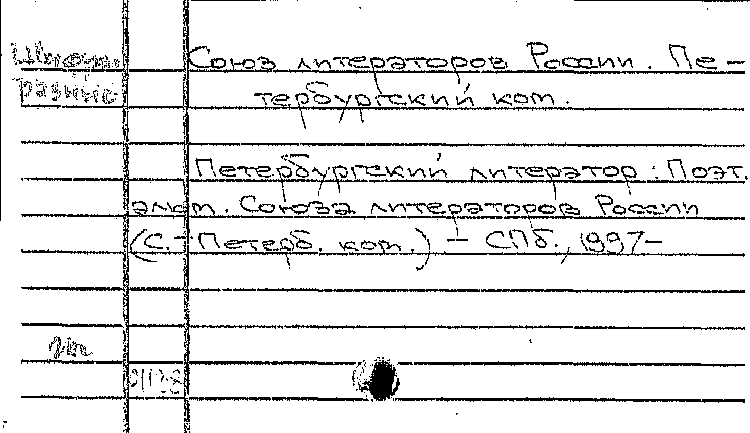 Шифры
разные
Союз литераторов России. Пе-
тербургский ком.
Петербургский литератор: Поэт.
альм. Союза литераторов России
(С.-Петерб. ком.) – СПб., 1997–